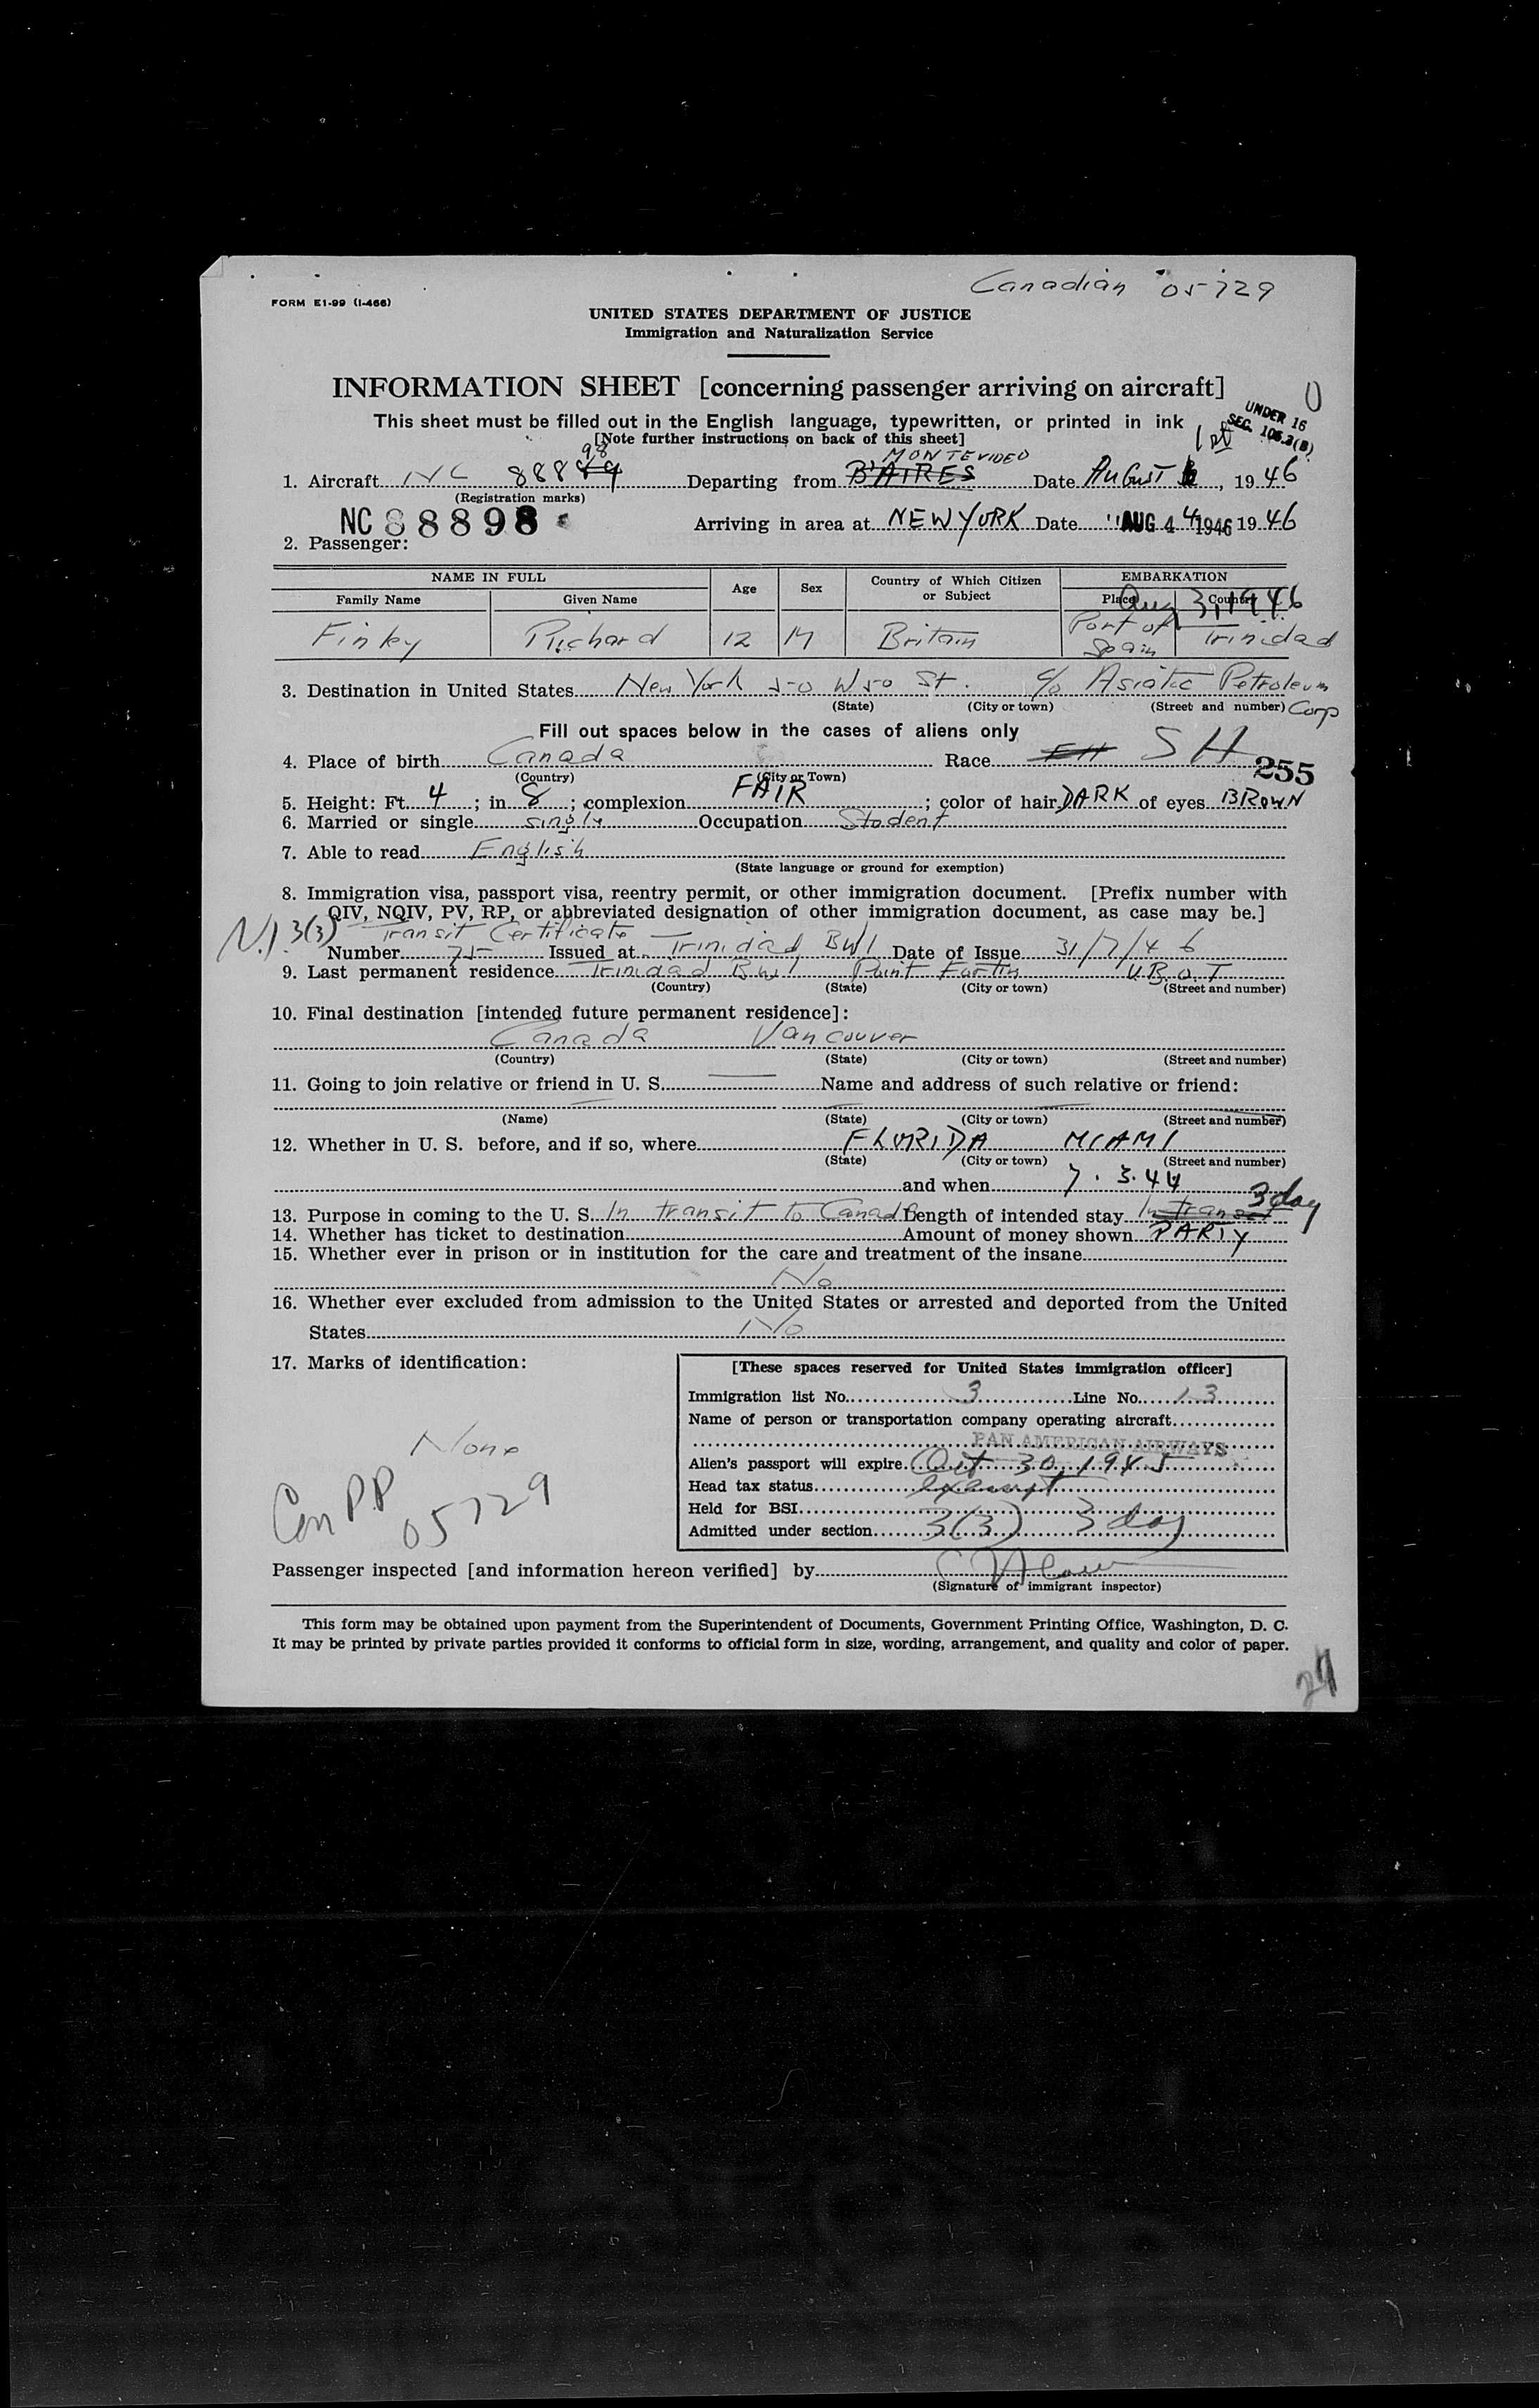 Canadian 05729
FORM E1-99 (I-466)
UNITED STATES DEPARTMENT OF JUSTICE
Immigration and Naturalization Service
INFORMATION SHEET [concerning passenger arriving on aircraft]
This sheet must be filled out in the English language, typewritten, or printed in ink
[Note further instructions on back of this sheet]
UNDER 16
SEC. 106.3(B)
98 MONTEVIDEO 1st
1. Aircraft NC 88889 Departing from B'AIRES Date AUGUST, 1946
(Registration marks)
NC 88898 Arriving in area at NEW YORK Date AUG 4 1946 1946
2. Passenger:
NAME IN FULL Age Sex Country of Which Citizen or Subject EMBARKATION
Family Name Given Name Place Country
Aug 3, 1946
Finky Richard 12 M Britain Port of Spain Trinidad
3. Destination in United States New York 50 W 50 St. c/o Asiatic Petroleum Corp
(State) (City or town) (Street and number)
Fill out spaces below in the cases of aliens only
4. Place of birth Canada Race EH SH
(Country) (City or Town)
255
5. Height: Ft. 4; in 8; complexion FAIR; color of hair DARK of eyes BROWN
6. Married or single single Occupation Student
7. Able to read English
(State language or ground for exemption)
8. Immigration visa, passport visa, reentry permit, or other immigration document. [Prefix number with
QIV, NQIV, PV, RP, or abbreviated designation of other immigration document, as case may be.]
N.I 3(3) Transit Certificate
Number 75 Issued at Trinidad BWI Date of Issue 31/7/46
9. Last permanent residence Trinidad BWI Point Fortin U.B.O.T
(Country) (State) (City or town) (Street and number)
10. Final destination [intended future permanent residence]:
Canada Vancouver
(Country) (State) (City or town) (Street and number)
11. Going to join relative or friend in U. S. Name and address of such relative or friend:
(Name) (State) (City or town) (Street and number)
12. Whether in U. S. before, and if so, where FLORIDA MIAMI
(State) (City or town) (Street and number)
and when 7.3.44
3 day
13. Purpose in coming to the U. S. In transit to Canada Length of intended stay In transit
14. Whether has ticket to destination Amount of money shown PARTY
15. Whether ever in prison or in institution for the care and treatment of the insane
No
16. Whether ever excluded from admission to the United States or arrested and deported from the United
States No
17. Marks of identification:
None
Can PP 05729
[These spaces reserved for United States immigration officer]
Immigration list No. 3 Line No. 13
Name of person or transportation company operating aircraft
PAN AMERICAN AIRWAYS
Alien's passport will expire Oct 30, 1945
Head tax status exempt
Held for BSI
Admitted under section 3(3) 3 day
Passenger inspected [and information hereon verified] by
(Signature of immigrant inspector)
This form may be obtained upon payment from the Superintendent of Documents, Government Printing Office, Washington, D. C.
It may be printed by private parties provided it conforms to official form in size, wording, arrangement, and quality and color of paper.